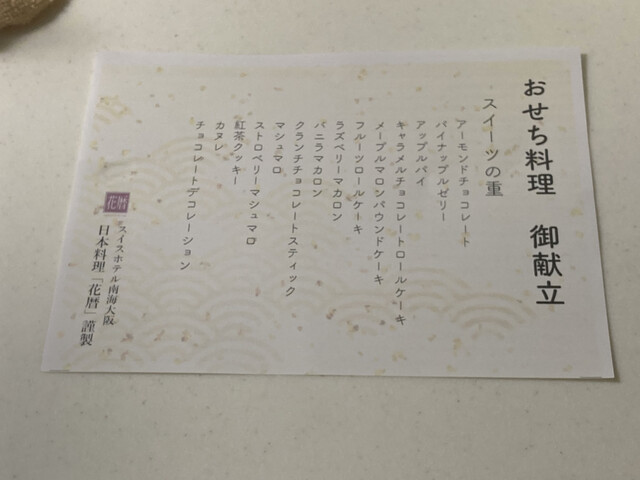 おせち料理 御献立
スイーツの重
アーモンドチョコレート
パイナップルゼリー
アップルパイ
キャラメルチョコレートロールケーキ
メープルマロンパウンドケーキ
フルーツロールケーキ
ラズベリーマカロン
バニラマカロン
クランチチョコレートスティック
マシュマロ
ストロベリーマシュマロ
紅茶クッキー
カヌレ
チョコレートデコレーション
花暦
スイスホテル南海大阪
日本料理「花暦」謹製